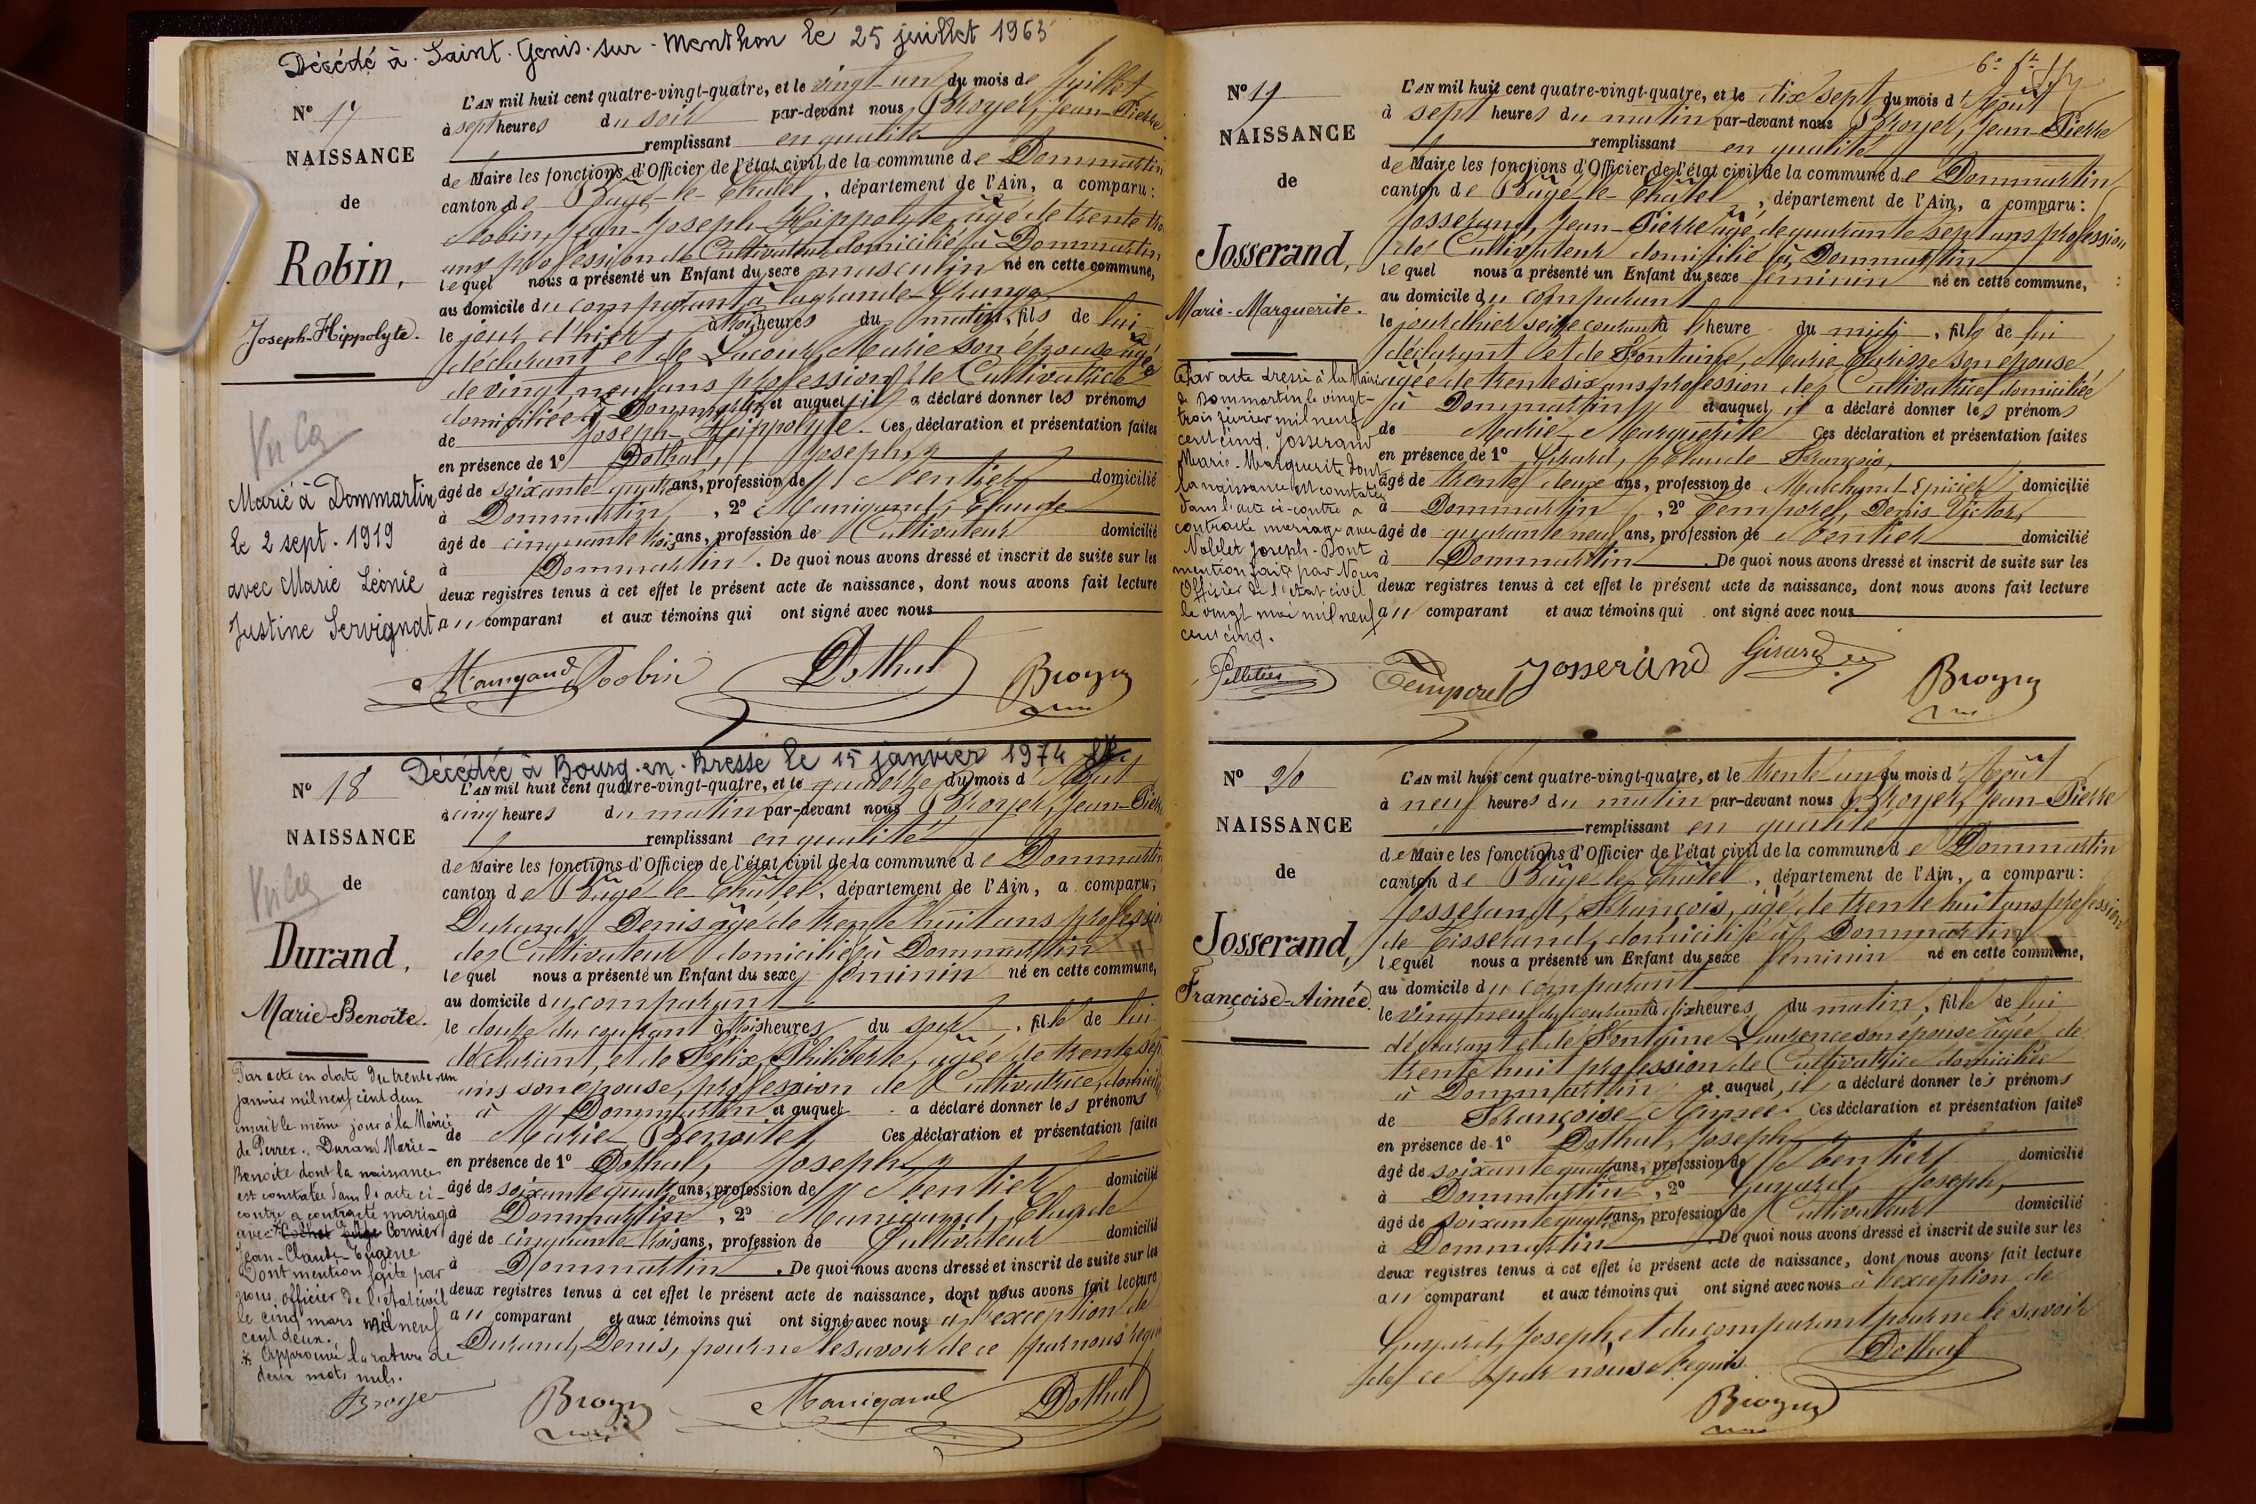 Décédé à Saint-Genis-sur-Menthon le 25 juillet 1963
N° 17
NAISSANCE
de
Robin,
Joseph-Hippolyte.
Marié à Dommartin
le 2 sept. 1919
avec Marie Léonie
Justine Servignat
L'AN mil huit cent quatre-vingt-quatre, et le vingt-un du mois de Juillet
à sept heures du soir par-devant nous Broyer, Jean-Pierre
remplissant en qualité
de Maire les fonctions d'Officier de l'état civil de la commune de Dommartin
canton de Bâgé-le-Châtel, département de l'Ain, a comparu:
Robin, Jean-Joseph-Hippolyte, âgé de trente
ans profession de Cultivateur domicilié à Dommartin
lequel nous a présenté un Enfant du sexe masculin né en cette commune,
au domicile du comparant à lagrande Grange
le jour d'hier à trois heures du matin, fils de lui
déclarant et de Lacour, Marie son épouse âgée
de vingt neuf ans profession de Cultivatrice
domiciliée à Dommartin et auquel il a déclaré donner les prénoms
de Joseph-Hippolyte. Ces déclaration et présentation faites
en présence de 1° Dothal, Joseph,
âgé de soixante-quatre ans, profession de Rentier domicilié
à Dommartin, 2° Manigand, Claude
âgé de cinquante trois ans, profession de Cultivateur domicilié
à Dommartin. De quoi nous avons dressé et inscrit de suite sur les
deux registres tenus à cet effet le présent acte de naissance, dont nous avons fait lecture
au comparant et aux témoins qui ont signé avec nous
Manigand Robin Dothal Broyer
Décédée à Bourg-en-Bresse le 15 janvier 1974
N° 18
NAISSANCE
de
Durand,
Marie-Benoite.
Par acte en date du trente-un
janvier mil neuf cent deux
inscrit le même jour à la Mairie
de Perrex. Durand Marie-
Benoite dont la naissance
est constatée dans l'acte ci-
contre a contracté mariage
avec Cornier
Jean-Claude-Eugène
Dont mention faite par
nous, officier de l'état civil
le cinq mars mil neuf
cent deux.
Approuvé la rature de
deux mots nuls.
Broyer
L'AN mil huit cent quatre-vingt-quatre, et le quatorze du mois d'Août
à cinq heures du matin par-devant nous Broyer, Jean-Pierre
remplissant en qualité
de Maire les fonctions d'Officier de l'état civil de la commune de Dommartin
canton de Bâgé-le-Châtel, département de l'Ain, a comparu:
Durand, Denis âgé de trente huit ans profession
de Cultivateur domicilié à Dommartin
lequel nous a présenté un Enfant du sexe féminin né en cette commune,
au domicile du comparant
le douze du courant à trois heures du soir, fille de lui
déclarant, et de Félix, Philiberte, âgée de trente sept
ans son épouse, profession de Cultivatrice, domiciliée
à Dommartin et auquel a déclaré donner les prénoms
de Marie Benoite, Ces déclaration et présentation faites
en présence de 1° Dothal, Joseph,
âgé de soixante quatre ans, profession de Rentier domicilié
à Dommartin, 2° Manigand, Claude
âgé de cinquante-trois ans, profession de Cultivateur domicilié
à Dommartin. De quoi nous avons dressé et inscrit de suite sur les
deux registres tenus à cet effet le présent acte de naissance, dont nous avons fait lecture
au comparant et aux témoins qui ont signé avec nous à l'exception de
Durand, Denis, pour ne le savoir de ce par nous requis
Broyer Manigand Dothal
N° 19
NAISSANCE
de
Josserand,
Marie-Marguerite.
Par acte dressé à la Mairie
de Dommartin le vingt-
trois février mil neuf
cent cinq, Josserand
Marie-Marguerite dont
la naissance est constatée
dans l'acte ci-contre a
contracté mariage avec
Noblet Joseph. Dont
mention faite par Nous
Officier de l'état civil
le vingt mai mil neuf
cent cinq.
Pelletier
L'AN mil huit cent quatre-vingt-quatre, et le dix sept du mois d'Août
à sept heures du matin par-devant nous Broyer, Jean-Pierre
remplissant en qualité
de Maire les fonctions d'Officier de l'état civil de la commune de Dommartin
canton de Bâgé-le-Châtel, département de l'Ain, a comparu:
Josserand, Jean-Pierre âgé de quarante sept ans profession
de Cultivateur domicilié à Dommartin
lequel nous a présenté un Enfant du sexe féminin né en cette commune,
au domicile du comparant
le jour d'hier seize courant à heure du midi, fille de lui
déclarant et de Fontaine, Marie Clarisse son épouse
âgée de trente six ans profession de Cultivatrice domiciliée
à Dommartin et auquel il a déclaré donner les prénoms
de Marie-Marguerite Ces déclaration et présentation faites
en présence de 1° Girard, Claude François,
âgé de trente deux ans, profession de Marchand-Epicier domicilié
à Dommartin, 2° Temporel, Denis Victor,
âgé de quarante neuf ans, profession de Rentier domicilié
à Dommartin. De quoi nous avons dressé et inscrit de suite sur les
deux registres tenus à cet effet le présent acte de naissance, dont nous avons fait lecture
au comparant et aux témoins qui ont signé avec nous
Temporel Josserand Girard Broyer
N° 20
NAISSANCE
de
Josserand,
Françoise-Aimée.
L'AN mil huit cent quatre-vingt-quatre, et le trente-un du mois d'Août
à neuf heures du matin par-devant nous Broyer, Jean-Pierre
remplissant en qualité
de Maire les fonctions d'Officier de l'état civil de la commune de Dommartin
canton de Bâgé-le-Châtel, département de l'Ain, a comparu:
Josserand, François, âgé de trente huit ans profession
de Tisserand, domicilié à Dommartin
lequel nous a présenté un Enfant du sexe féminin né en cette commune,
au domicile du comparant
le vingt neuf du courant à dix heures du matin, fille de lui
déclarant et de Fontaine Laurence son épouse âgée de
trente huit profession de Cultivatrice domiciliée
à Dommartin et auquel, il a déclaré donner les prénoms
de Françoise Aimée. Ces déclaration et présentation faites
en présence de 1° Dothal, Joseph,
âgé de soixante quatre ans, profession de Rentier domicilié
à Dommartin, 2° Guyard, Joseph,
âgé de soixante quatre ans, profession de Cultivateur domicilié
à Dommartin. De quoi nous avons dressé et inscrit de suite sur les
deux registres tenus à cet effet le présent acte de naissance, dont nous avons fait lecture
au comparant et aux témoins qui ont signé avec nous à l'exception de
Guyard, Joseph, et du comparant pour ne le savoir
de ce par nous requis
Dothal
Broyer